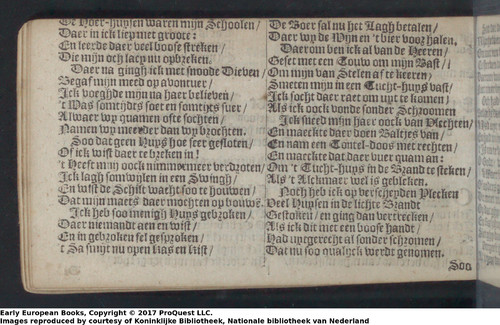 De Hoer-huysen waren mijn Schoolen/
Daer in ick liep met groote:
En leerde daer veel boose streken/
Die mijn och lacy nu opbreken.
Daer na gingh ick met snoode Dieven/
Begaf mijn meed op avontuer/
Ick voeghde mijn na haer believen/
't Was somtijdts soet en somtijts suer/
Alwaer wy quamen ofte sochten/
Namen wy meerder dan wy brochten.
Soo dat geen Huys hoe seer gesloten/
Of ick wist daer te breken in!
't Heeft mijn oock nimmermeer verdroten/
Ick lagh somwijlen in een
En wist de Schilt wacht soo te houwen/
Dat mijn maets daer mochten op bouwe.
Ick heb soo menigh Huys gebroken/
Daer niemandt aen en wist/
En in gebroken fel gesproken/
't Sa fluyt nu open Kas en Kist/
De Boer sal nu het Lagh betalen/
Daer wy de Wijn en 't bier voor halen.
Daerom ben ick al van de Heeren/
Geset met een Touw om mijn Bast/
Om mijn van Stelen af te keeren/
Smeten mijn in een Tucht-huys vast/
Ick socht daer raet om uyt te komen/
Als ick oock vonde sonder Schroomen
Ick smeed mijn haer oock van Vlechten/
En maeckte daer doen Baltjes van/
En nam een Tontel-doos met rechten/
En maeckte dat daer vuer quam an:
Om 't Tucht-huys in de Brand te steken/
Als 't Alckmaer wel is gebleken.
Noch heb ick op verscheyden Plecken
Veel Huysen in de lichte Brandt
Gestoken/ en ging dan vertrecken/
Als ick dit met een boose handt/
Had uytgerecht al sonder schromen/
Dat nu soo qualyck werdt genomen.
Soo
Early European Books, Copyright © 2017 ProQuest LLC.
Images reproduced by courtesy of Koninklijke Bibliotheek, Nationale bibliotheek van Nederland